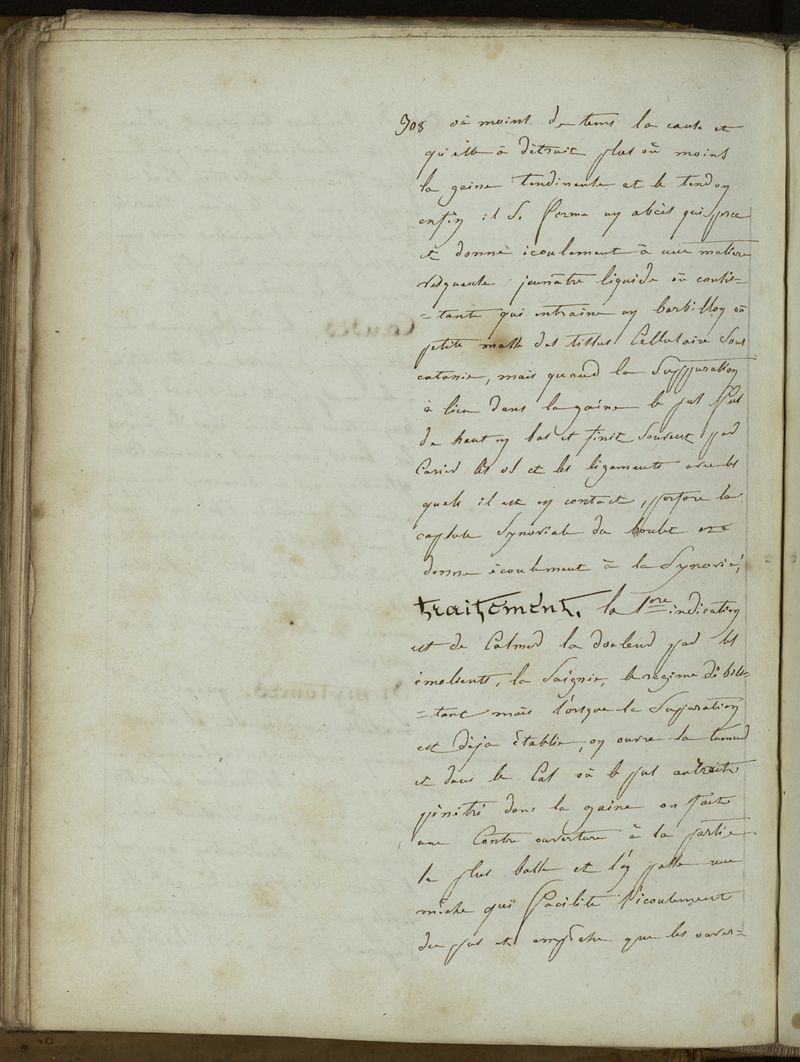 308 où moint de tems la cause et
qu'elle à détruit plus où moins
la gaine tendineuse et le tendon
enfin il se forme un abcès qui perce
et donne écoulement à une matière
visqueuse jaunâtre liquide où consis=
=tante qui entraine un barbillon où
petite masse des tissus Cellulaire sous
cutanée, mais quand la Suppuration
à lieu dans la gaine le pus fuse
de haut en bas et finit souvent par
Carier les os et les ligaments avec les
quels il est en contact, perfore la
capsule Synoviale du boulet et
donne écoulement à la Synovie,
traitement. la 1ere indication
est de Calmer la douleur par les
émolients, la Saignée, le régime débili=
=tant mais lorsque la Suppuration
est déja établie, on ouvre la tumeur
et dans le Cas où le pus aurait
pénétré dans la gaine on fait
une Contre ouverture à la partie
la plus basse et l'on passe une
mèche qui facilite l'écoulement
du pus et empêche que les ouver=